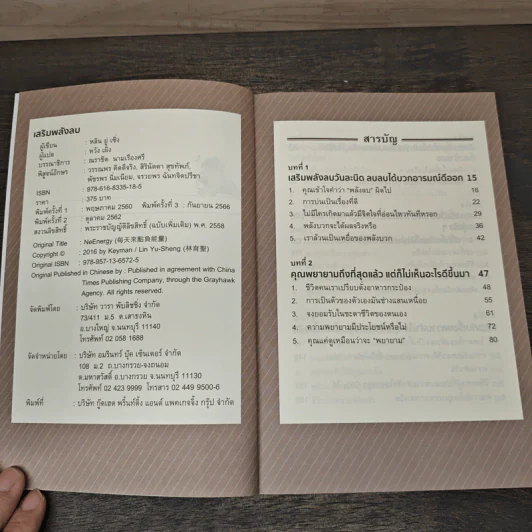 เสริมพลังลบ
ผู้เขียน : หลิน ยู่ เซิ่ง
ผู้แปล : หวัง เผิง
บรรณาธิการ : ณราธิต นามเรืองศรี
พิสูจน์อักษร : วรรณพร ติดดีจริง, สิรินัดดา สุขทัพภ์,
พัชรพร นิ่มเนียม, จรวยพร ฉันทจิตปรีชา
ISBN : 978-616-8335-18-5
ราคา : 375 บาท
พิมพ์ครั้งที่ 1 : พฤษภาคม 2560 พิมพ์ครั้งที่ 3 : กันยายน 2566
พิมพ์ครั้งที่ 2 : ตุลาคม 2562
สงวนลิขสิทธิ์ : พระราชบัญญัติลิขสิทธิ์ (ฉบับเพิ่มเติม) พ.ศ. 2558
Original Title : NeEnergy (每天來點負能量)
Copyright © : 2016 by Keyman / Lin Yu-Sheng (林育聖)
Original ISBN : 978-957-13-6572-5
Original Published in Chinese by : Published in agreement with China
Times Publishing Company, through the Grayhawk
Agency. All rights reserved.
จัดพิมพ์โดย : บริษัท วารา พับลิชชิ่ง จำกัด
73/411 ม.5 ต.เสาธงหิน
อ.บางใหญ่ จ.นนทบุรี 11140
โทรศัพท์ 02 058 1688
จัดจำหน่ายโดย : บริษัท อมรินทร์ บุ๊ค เซ็นเตอร์ จำกัด
108 ม.2 ถ.บางกรวย-จงถนอม
ต.มหาสวัสดิ์ อ.บางกรวย จ.นนทบุรี 11130
โทรศัพท์ 02 423 9999 โทรสาร 02 449 9500-6
พิมพ์ที่ : บริษัท กู๊ดเฮด พริ้นท์ติ้ง แอนด์ แพคเกจจิ้ง กรุ๊ป จำกัด
สารบัญ
บทที่ 1
เสริมพลังลบวันละนิด ลบลบได้บวกอารมณ์ดีออก 15
1. คุณเข้าใจคำว่า "พลังลบ" ผิดไป 16
2. การบ่นเป็นเรื่องที่ดี 22
3. ไม่มีใครเกิดมาแล้วมีจิตใจที่อ่อนไหวทันทีหรอก 29
4. พลังบวกจะได้ผลจริงหรือ 36
5. เราล้วนเป็นเหยื่อของพลังบวก 42
บทที่ 2
คุณพยายามถึงที่สุดแล้ว แต่ก็ไม่เห็นอะไรดีขึ้นมา 47
1. ชีวิตคนเราเปรียบดั่งอาหารกระป๋อง 48
2. การเป็นตัวของตัวเองมันช่างแสนเหนื่อย 55
3. จงยอมรับในชะตาชีวิตของตนเอง 61
4. ความพยายามมีประโยชน์หรือไม่ 72
5. คุณแค่ดูเหมือนว่าจะ "พยายาม" 80